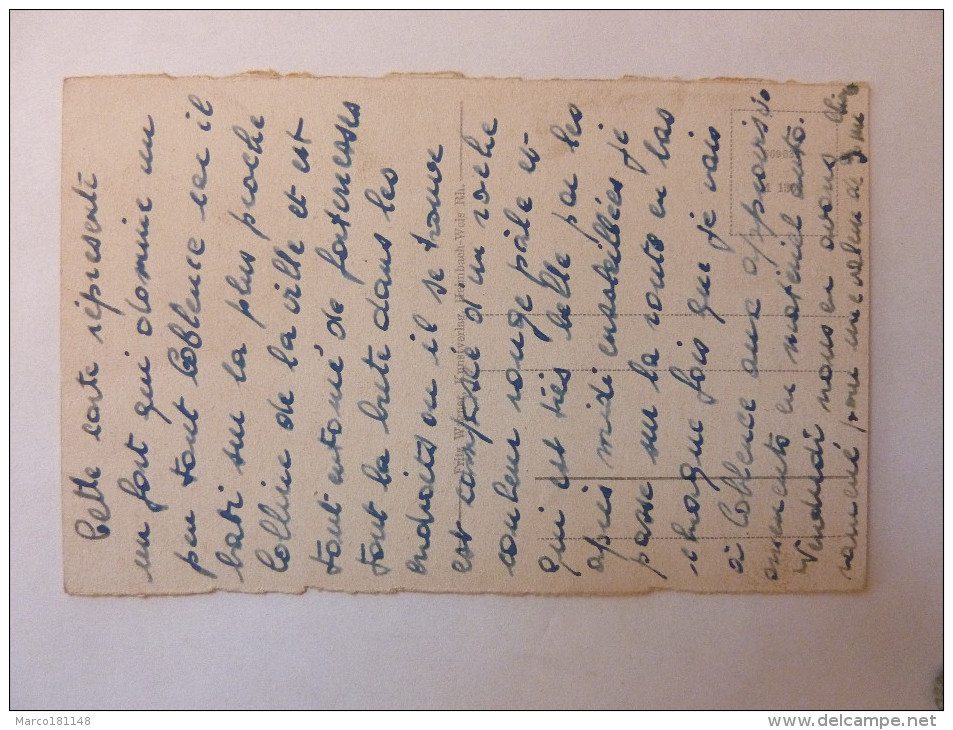 Cette carte réprésente
un fort qui domine un
peu tout Coblence car il
bati sur la plus proche
Colline de la ville et est
tout entouré de forteresses
tout la bute dans les
endroits ou il se trouve
est composé d'un roche
couleur rouge pâle et
qui est très belle par les
après midi ensoleillées je
passe sur la route en bas
chaque fois que je vais
à Coblence aux approvisio
nnements en matériel auto.
Vendredi nous en avons
ramené pour une valeur de
Fritz Wagner, Kunstverlag, Heimbach-Weis Rh.
Marco181148
www.delcampe.net